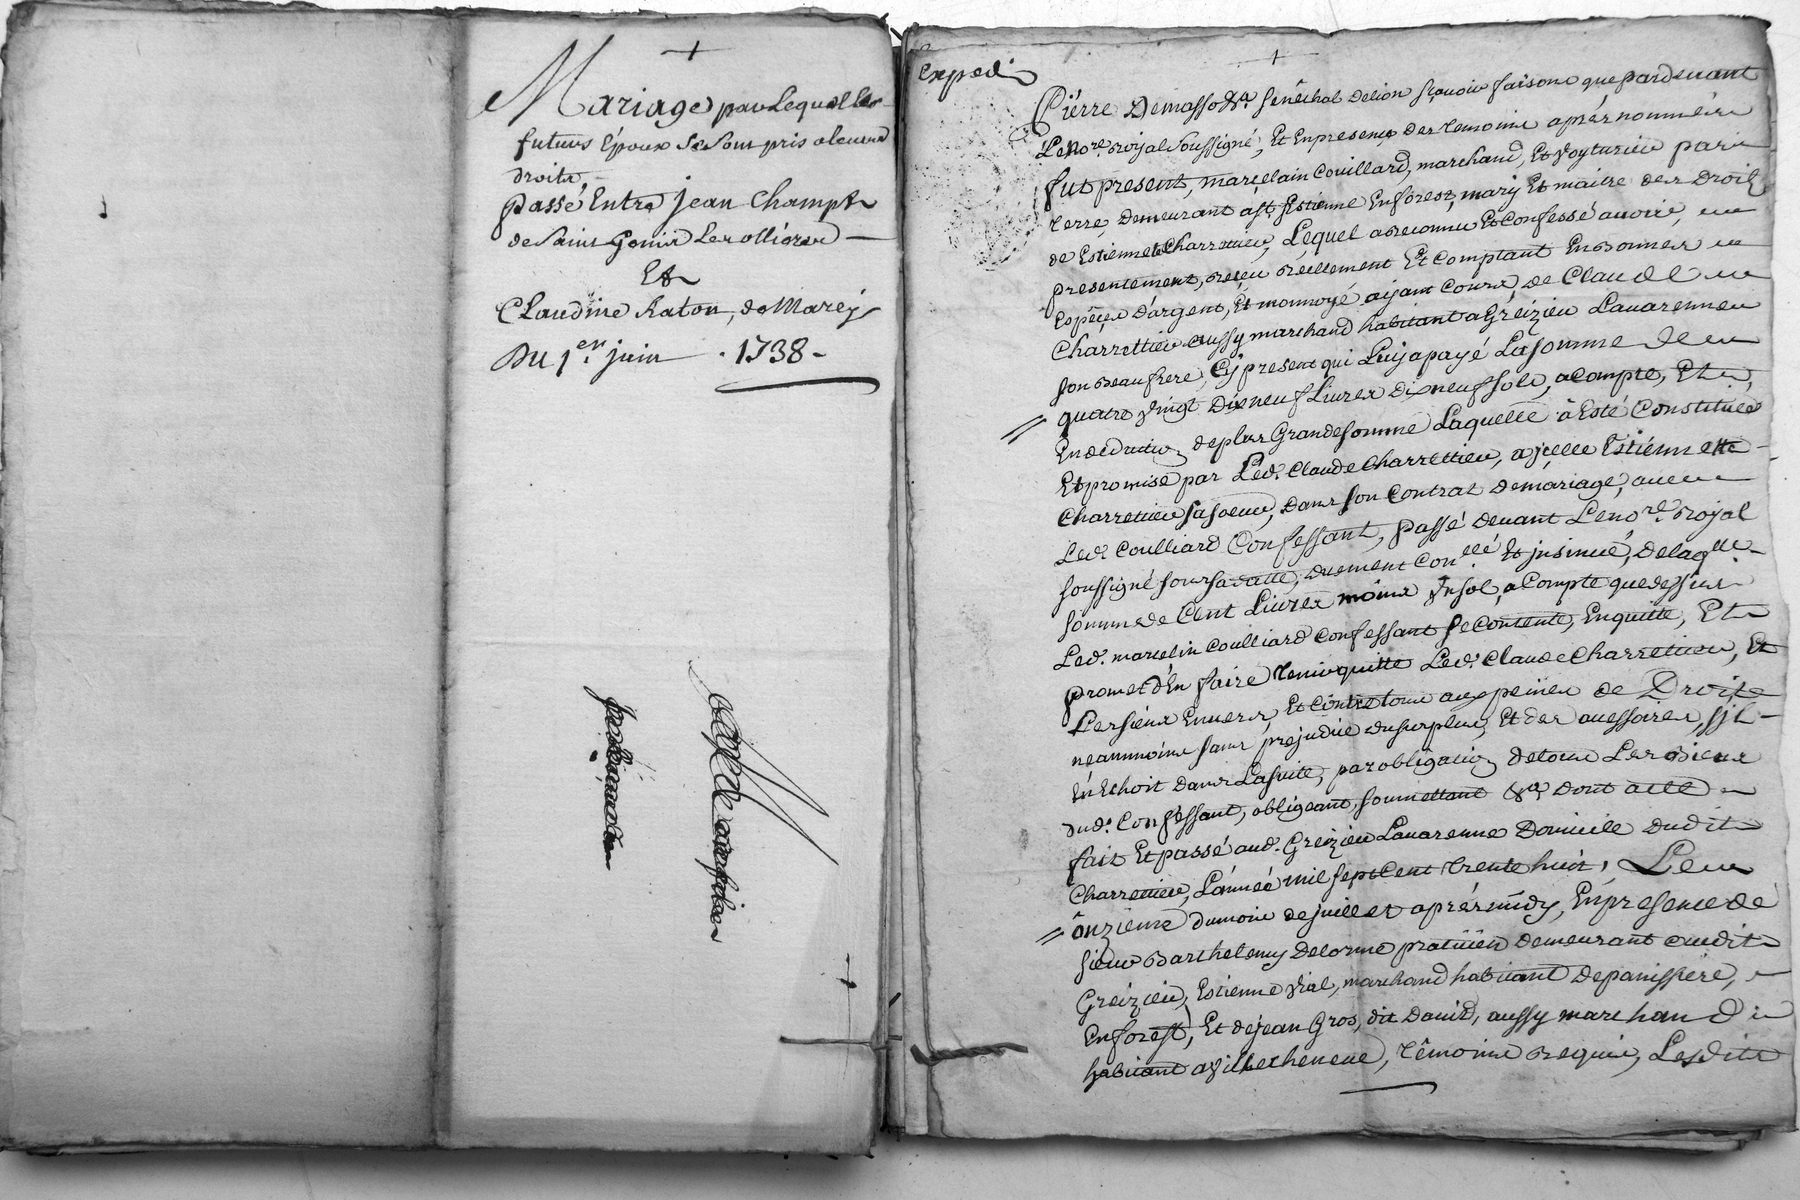 Mariage par Lequel les
futurs Epoux se sont pris a leurs
droits,
passé Entre jean Champt
de Saint Genis Les ollieres
Et
Claudine Raton, de Marcÿ
Du 1er. juin 1738
Exped
Pierre Demasso &a. senéchal delion sçavoir faisons que pardevant
Le No.re royal soussigné, Et En presence des temoins aprés nommés
fut present, marcelain Couillard, marchand, Et voyturier par
terre, demeurant a st. Estienne En forest, mary Et maitre des Droits
de Estiennette Charretier, Lequel a reconnu Et Confessé avoir,
presentement, reçeu réellement Et Comptant En bonnes
Espéces d'argent, Et monnoyé aÿant Cours, de Claude
Charrettier aussy marchand habitant a Gréizieu Lavarenne
son beau frere, Cy present qui Luÿ a payé La somme de
quatre vingt Dix neuf Livres dix neuf sols, a Compte, Et
En deduction de plus Grande somme Laquelle à Esté Constituée
Et promise par Led. Claude Charrettier, a jçelle Estiennette
Charrettier sa soeur, dans son Contrat de mariage, avec
Led. Coulliard Confessant, passé devant Le no.re royal
soussigné sous sa datte, duement Con.llé Et jnsinué, de laq.lle
somme de Cent Livres moins vn sol, a Compte que dessus
Led. marcelin Coulliard Confessant se Contente, En quitte, Et
promet d'En faire tenir quitte Led. Claude Charrettier, Et
Les siens Envers, Et Contre tous aux peines de Droits
neanmoins sans prejudice du surplus, Et des accessoires, s'jl
En Echoit dans La suite, par obligation de tous Les biens
dud. Confessant, obligeant, soumettant &a. dont acte
fait Et passé aud. Greizieu Lavarenne Domicile dudit
Charretier, L'année mil sept Cent trente huit, Le
ônzieme du mois de juillet aprés midy, En presence de
sieur Barthelemy Delorme praticien demeurant audit
Greizieu, Estienne Vial, marchand habitant de panissiere,
En forest, Et de jean Gros, dit David, aussy marchand
habitant a villechenéve, têmoins requis, Lesdits